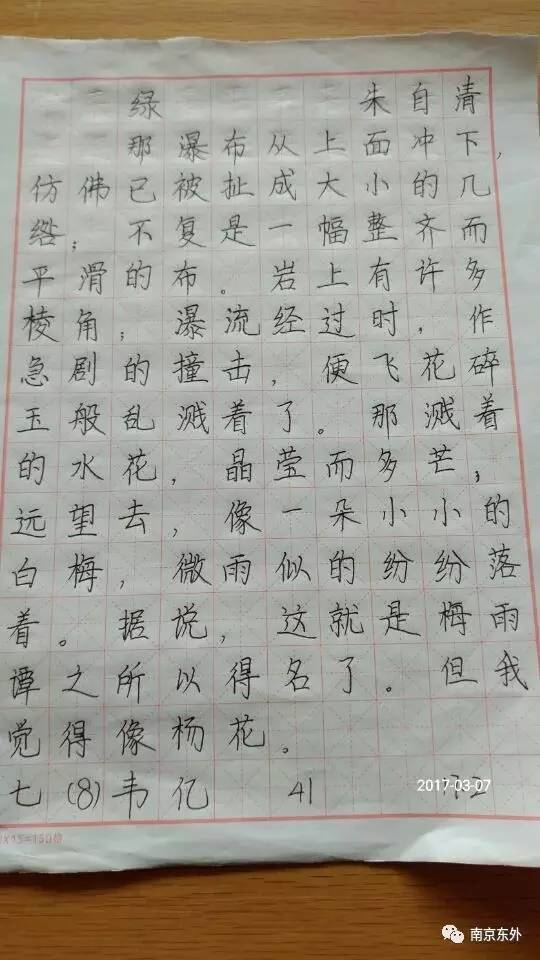 绿 朱自清
那瀑布从上面冲下,
仿佛已被扯成大小的几
绺;不复是一幅整齐而
平滑的布。岩上有许多
棱角;瀑流经过时,作
急剧的撞击,便飞花碎
玉般乱溅着了。那溅着
的水花,晶莹而多芒;
远望去,像一朵小小的
白梅,微雨似的纷纷落
着。据说,这就是梅雨
谭之所以得名了。但我
觉得像杨花。
七(8)韦亿 41
2017-03-07
15=150格
南京东外